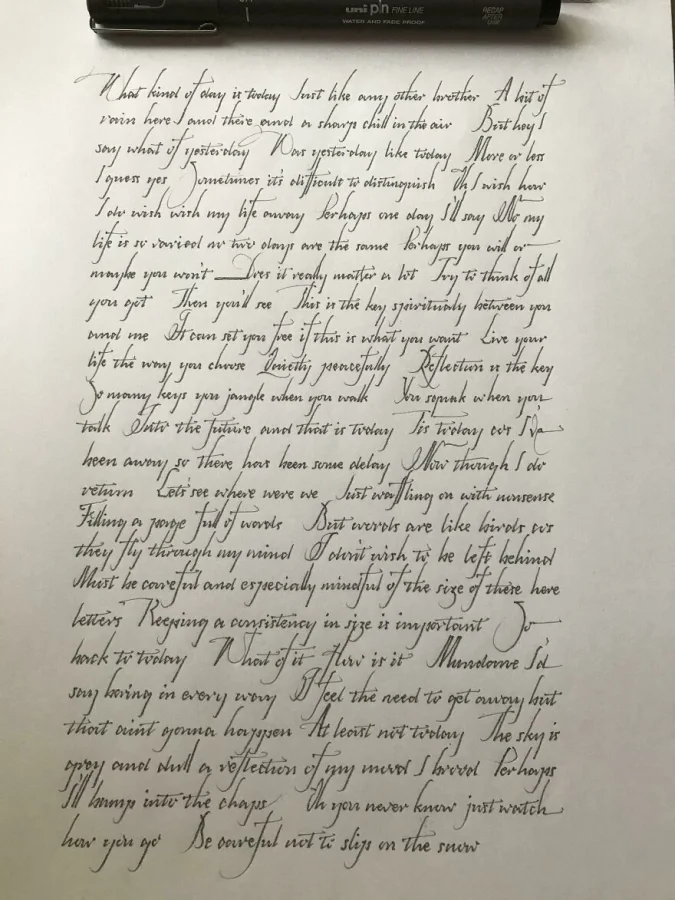 uni pin FINE LINE
WATER AND FADE PROOF
RECAP
AFTER
USE
What kind of day is today Just like any other brother A bit of
rain here I and there and a sharp chill in the air But hey I
say what of yesterday Was yesterday like today More or less
I guess yes Sometimes it's difficult to distinguish Oh I wish how
I do wish wish my life away Perhaps one day I'll say No my
life is so varied no two days are the same Perhaps you will or
maybe you won't Does it really matter a lot Try to think of all
you got Then you'll see This is the key spiritualy between you
and me It can set you free if this is what you want Live your
life the way you choose Quietly peacefully Reflection is the key
So many keys you jangle when you walk You squeak when you
talk Into the future and that is today Tis today as I've
been away so there has been some delay Now though I do
return Let's see where were we Just waffling on with nonsense
Filling a page full of words But words are like birds as
they fly through my mind I don't wish to be left behind
Must be careful and especially mindful of the size of these here
letters Keeping a consistency in size is important So
back to today What of it How is it Mundane I'd
say boring in every way I feel the need to get away but
that aint gonna happen At least not today The sky is
grey and dull a reflection of my mood I brood Perhaps
I'll bump into the chaps Oh you never know just watch
how you go Be careful not to slip on the snow